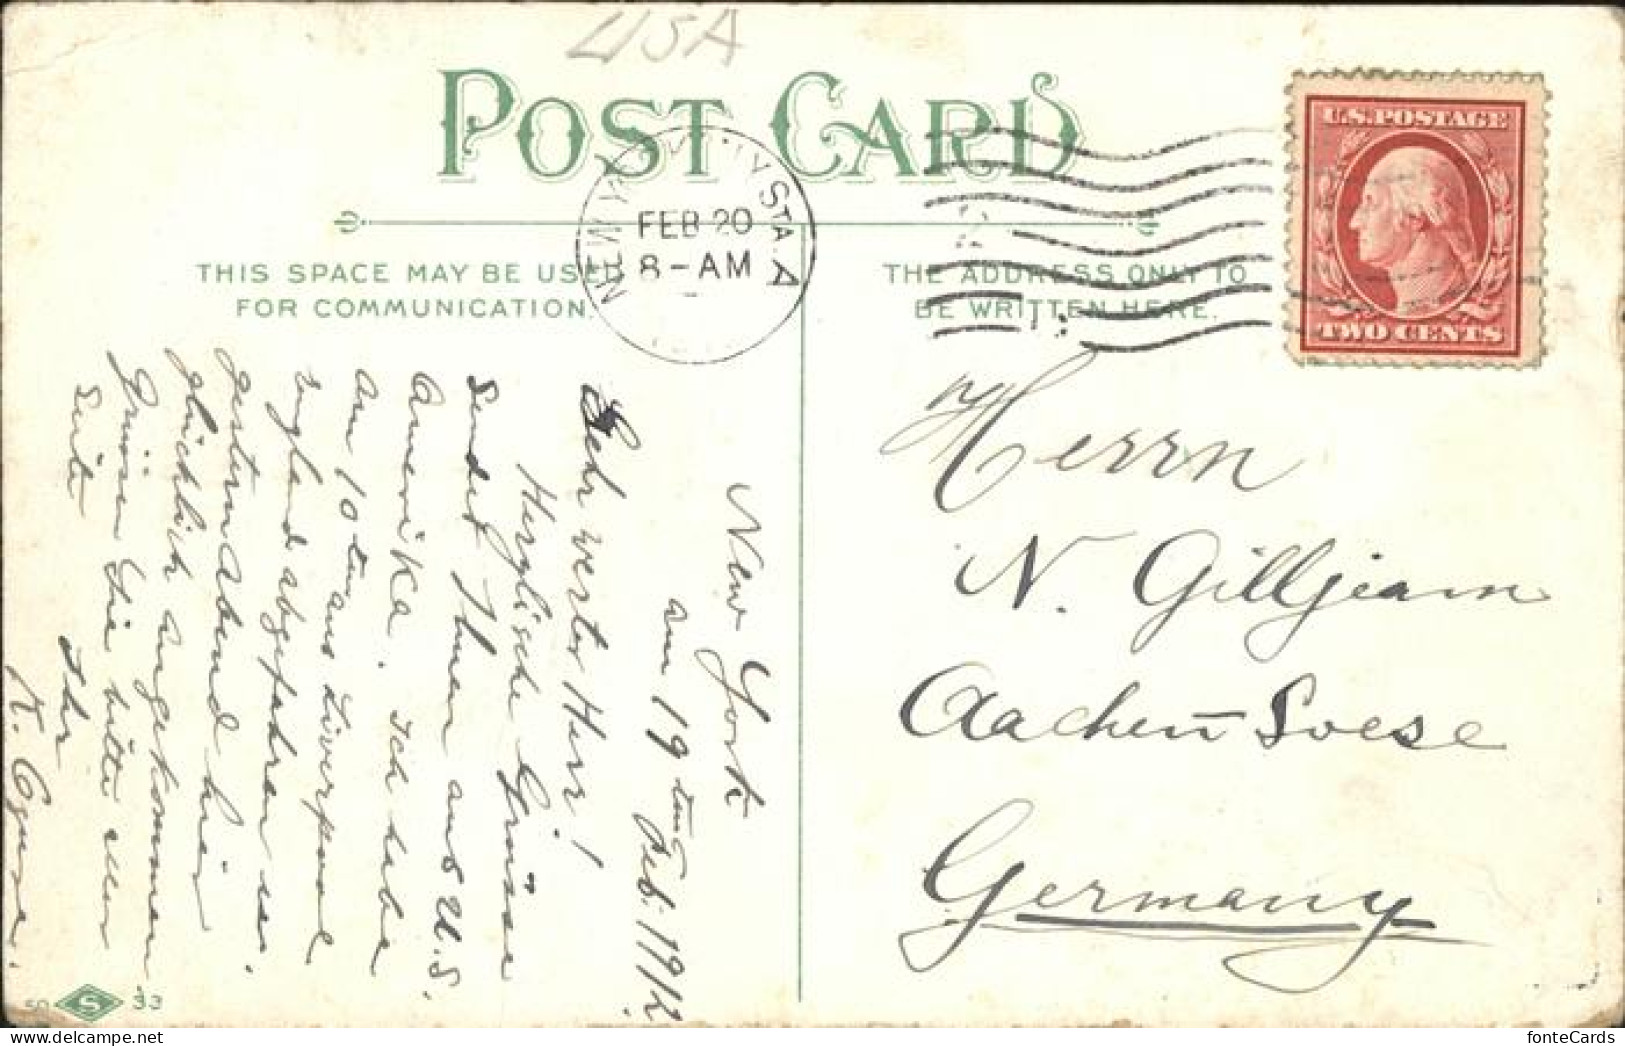 USA
POST CARD
U.S. POSTAGE
TWO CENTS
STA. A
FEB 20
8-AM
THIS SPACE MAY BE USED
FOR COMMUNICATION.
THE ADDRESS ONLY TO
BE WRITTEN HERE.
New York
am 19ten Feb. 1912
Sehr werter Herr!
Herzlische Grüsse
sendet Ihnen aus U.S.
Amerika. Ich habe
am 10ten aus Liverpool
England abgefahren u.
gestern Abend hier
glücklich angekommen
Grüssen Sie bitte
Seite
Ihr
Herrn
N. Gilljeam
Aachen-Soese
Germany
50 S 33
fonteCards